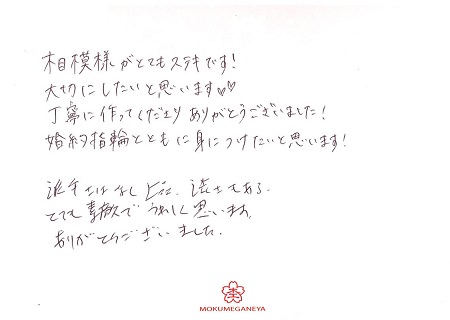 相模様がとてもステキです！
大切にしたいと思います♡♡
丁寧に作ってくださりありがとうございました！
婚約指輪とともに身につけたいと思います！
派手さはなし
とても素敵でうれしく思います。
ありがとうございました。
MOKUMEGANEYA